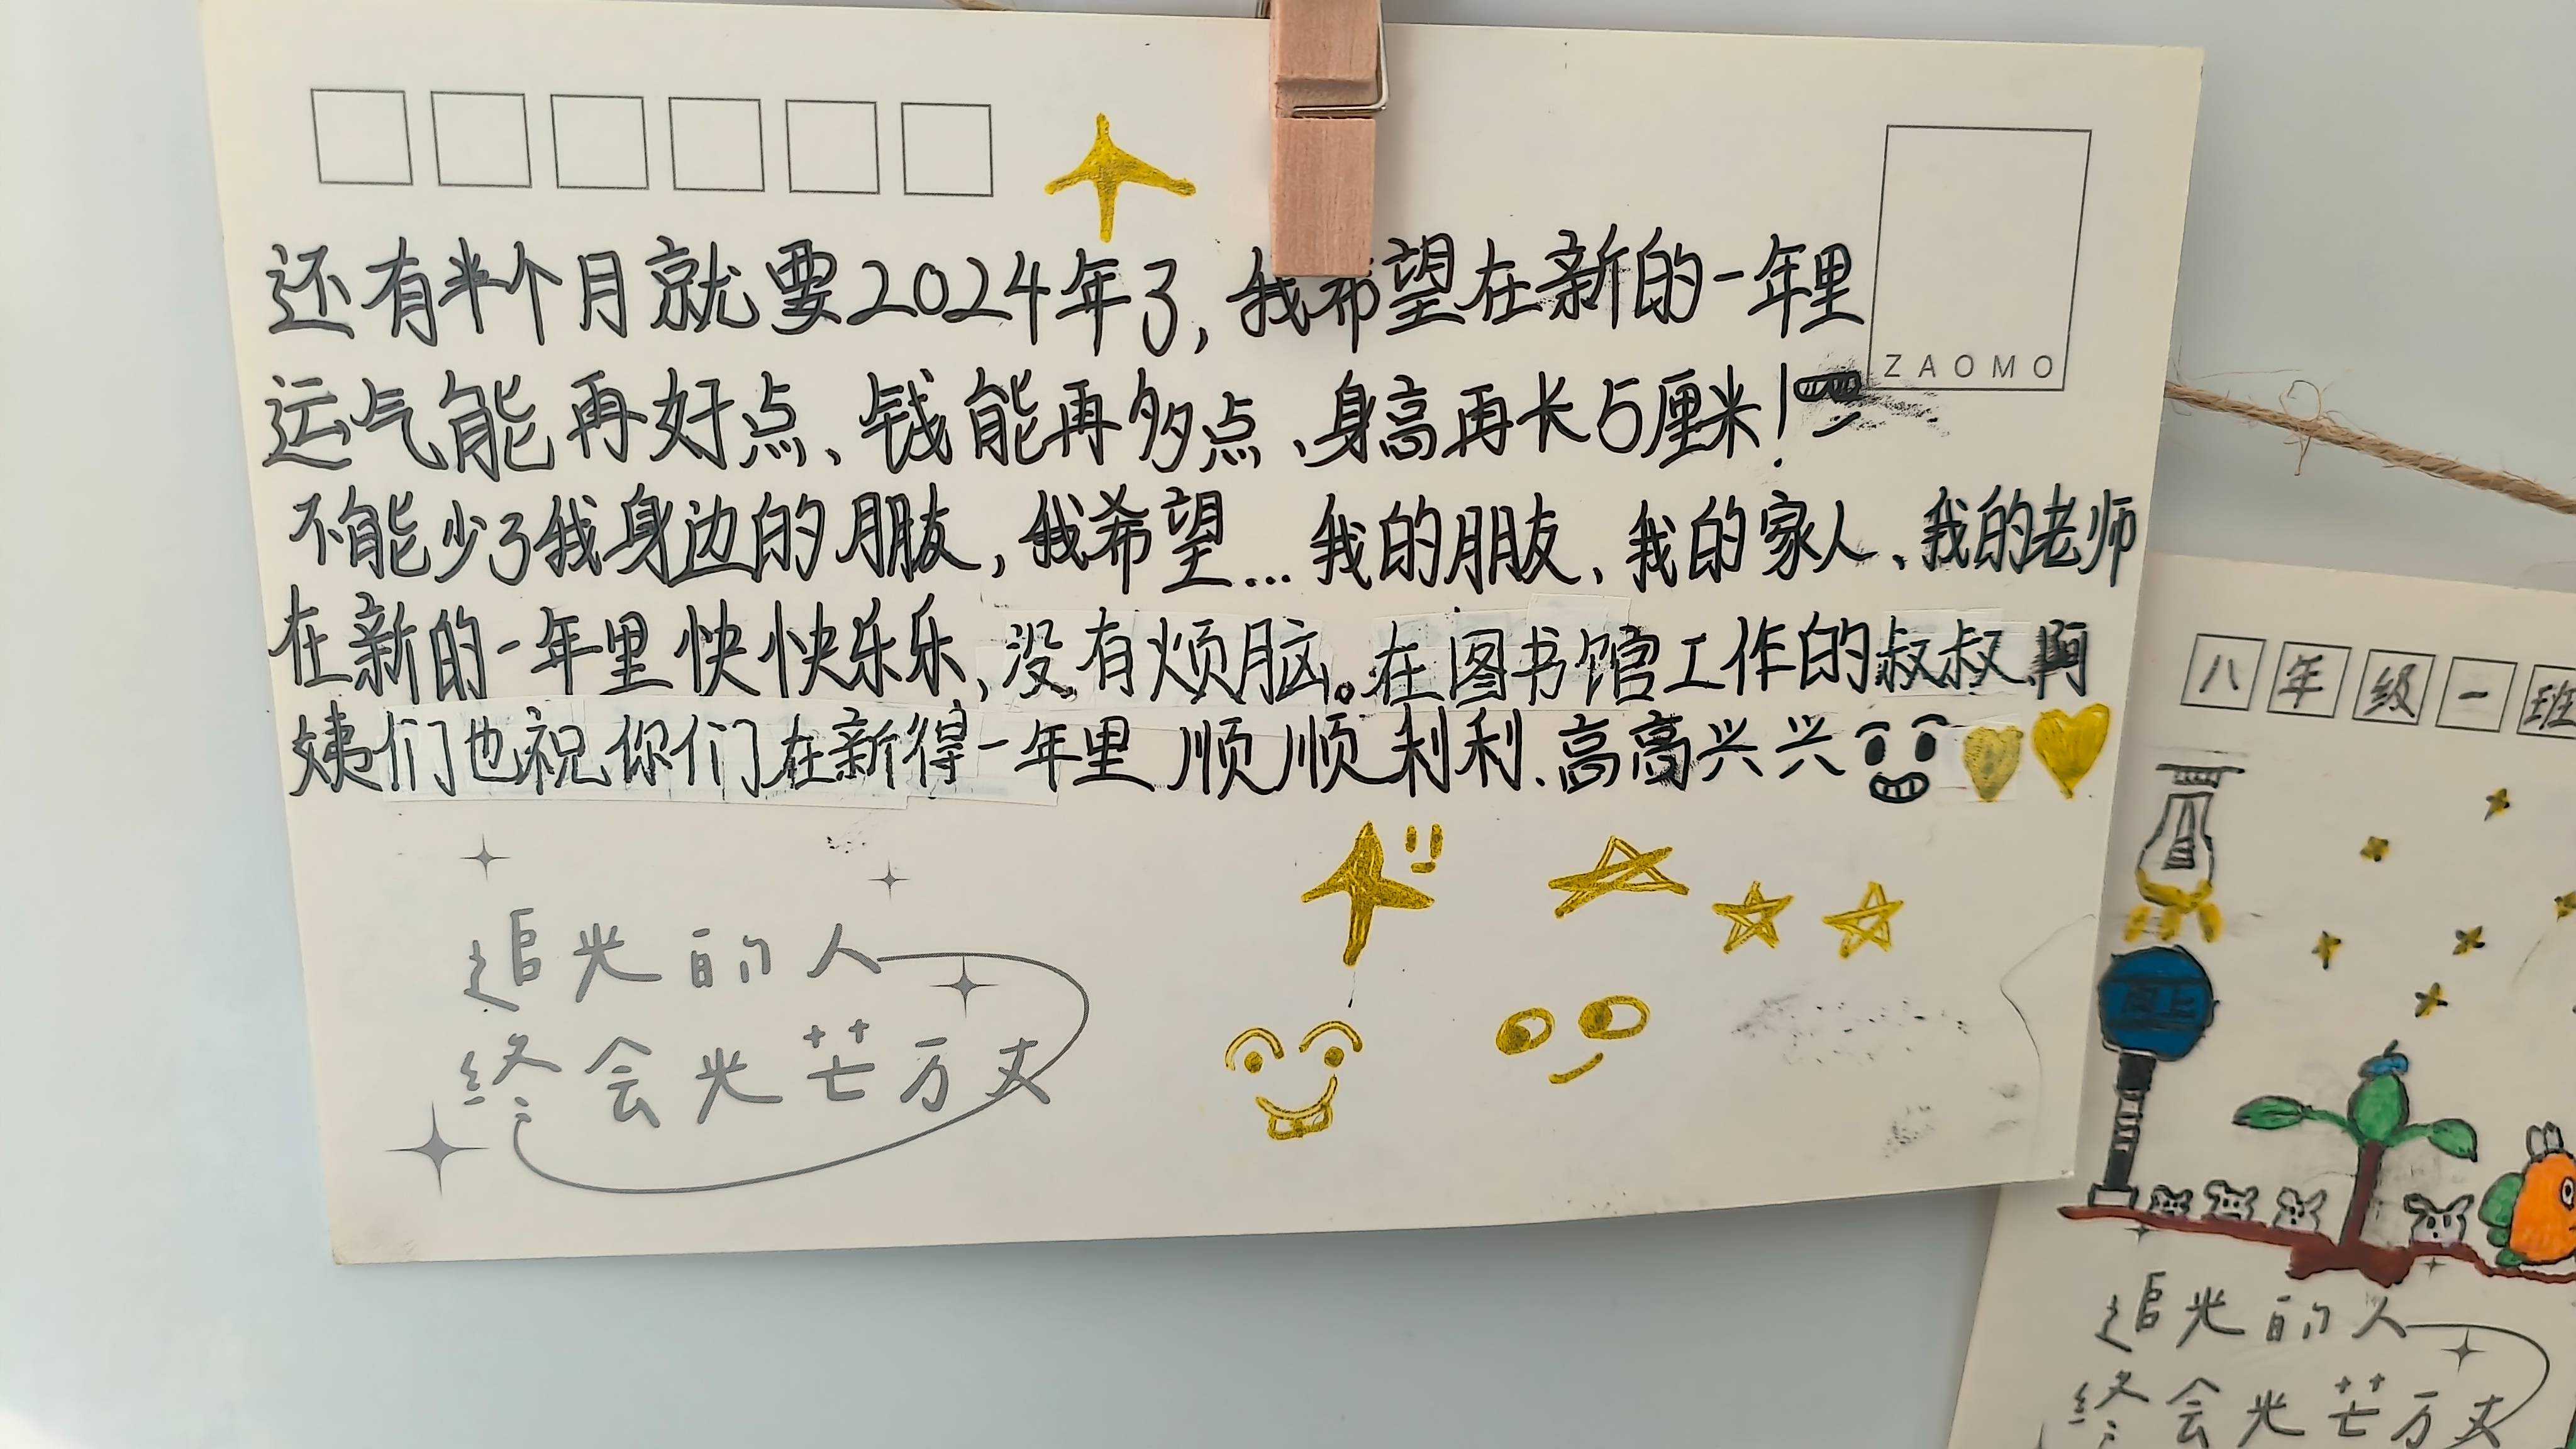 还有半个月就要2024年了，我希望在新的一年里
ZAOMO
运气能再好点、钱能再多点、身高再长5厘米！
不能少了我身边的朋友，我希望...我的朋友、我的家人、我的老师
在新的一年里快快乐乐、没有烦脑。在图书馆工作的叔叔阿
姨们也祝你们在新得一年里顺顺利利、高高兴兴
追光的人
终会光芒万丈
八年级一班
追光的人
终会光芒万丈